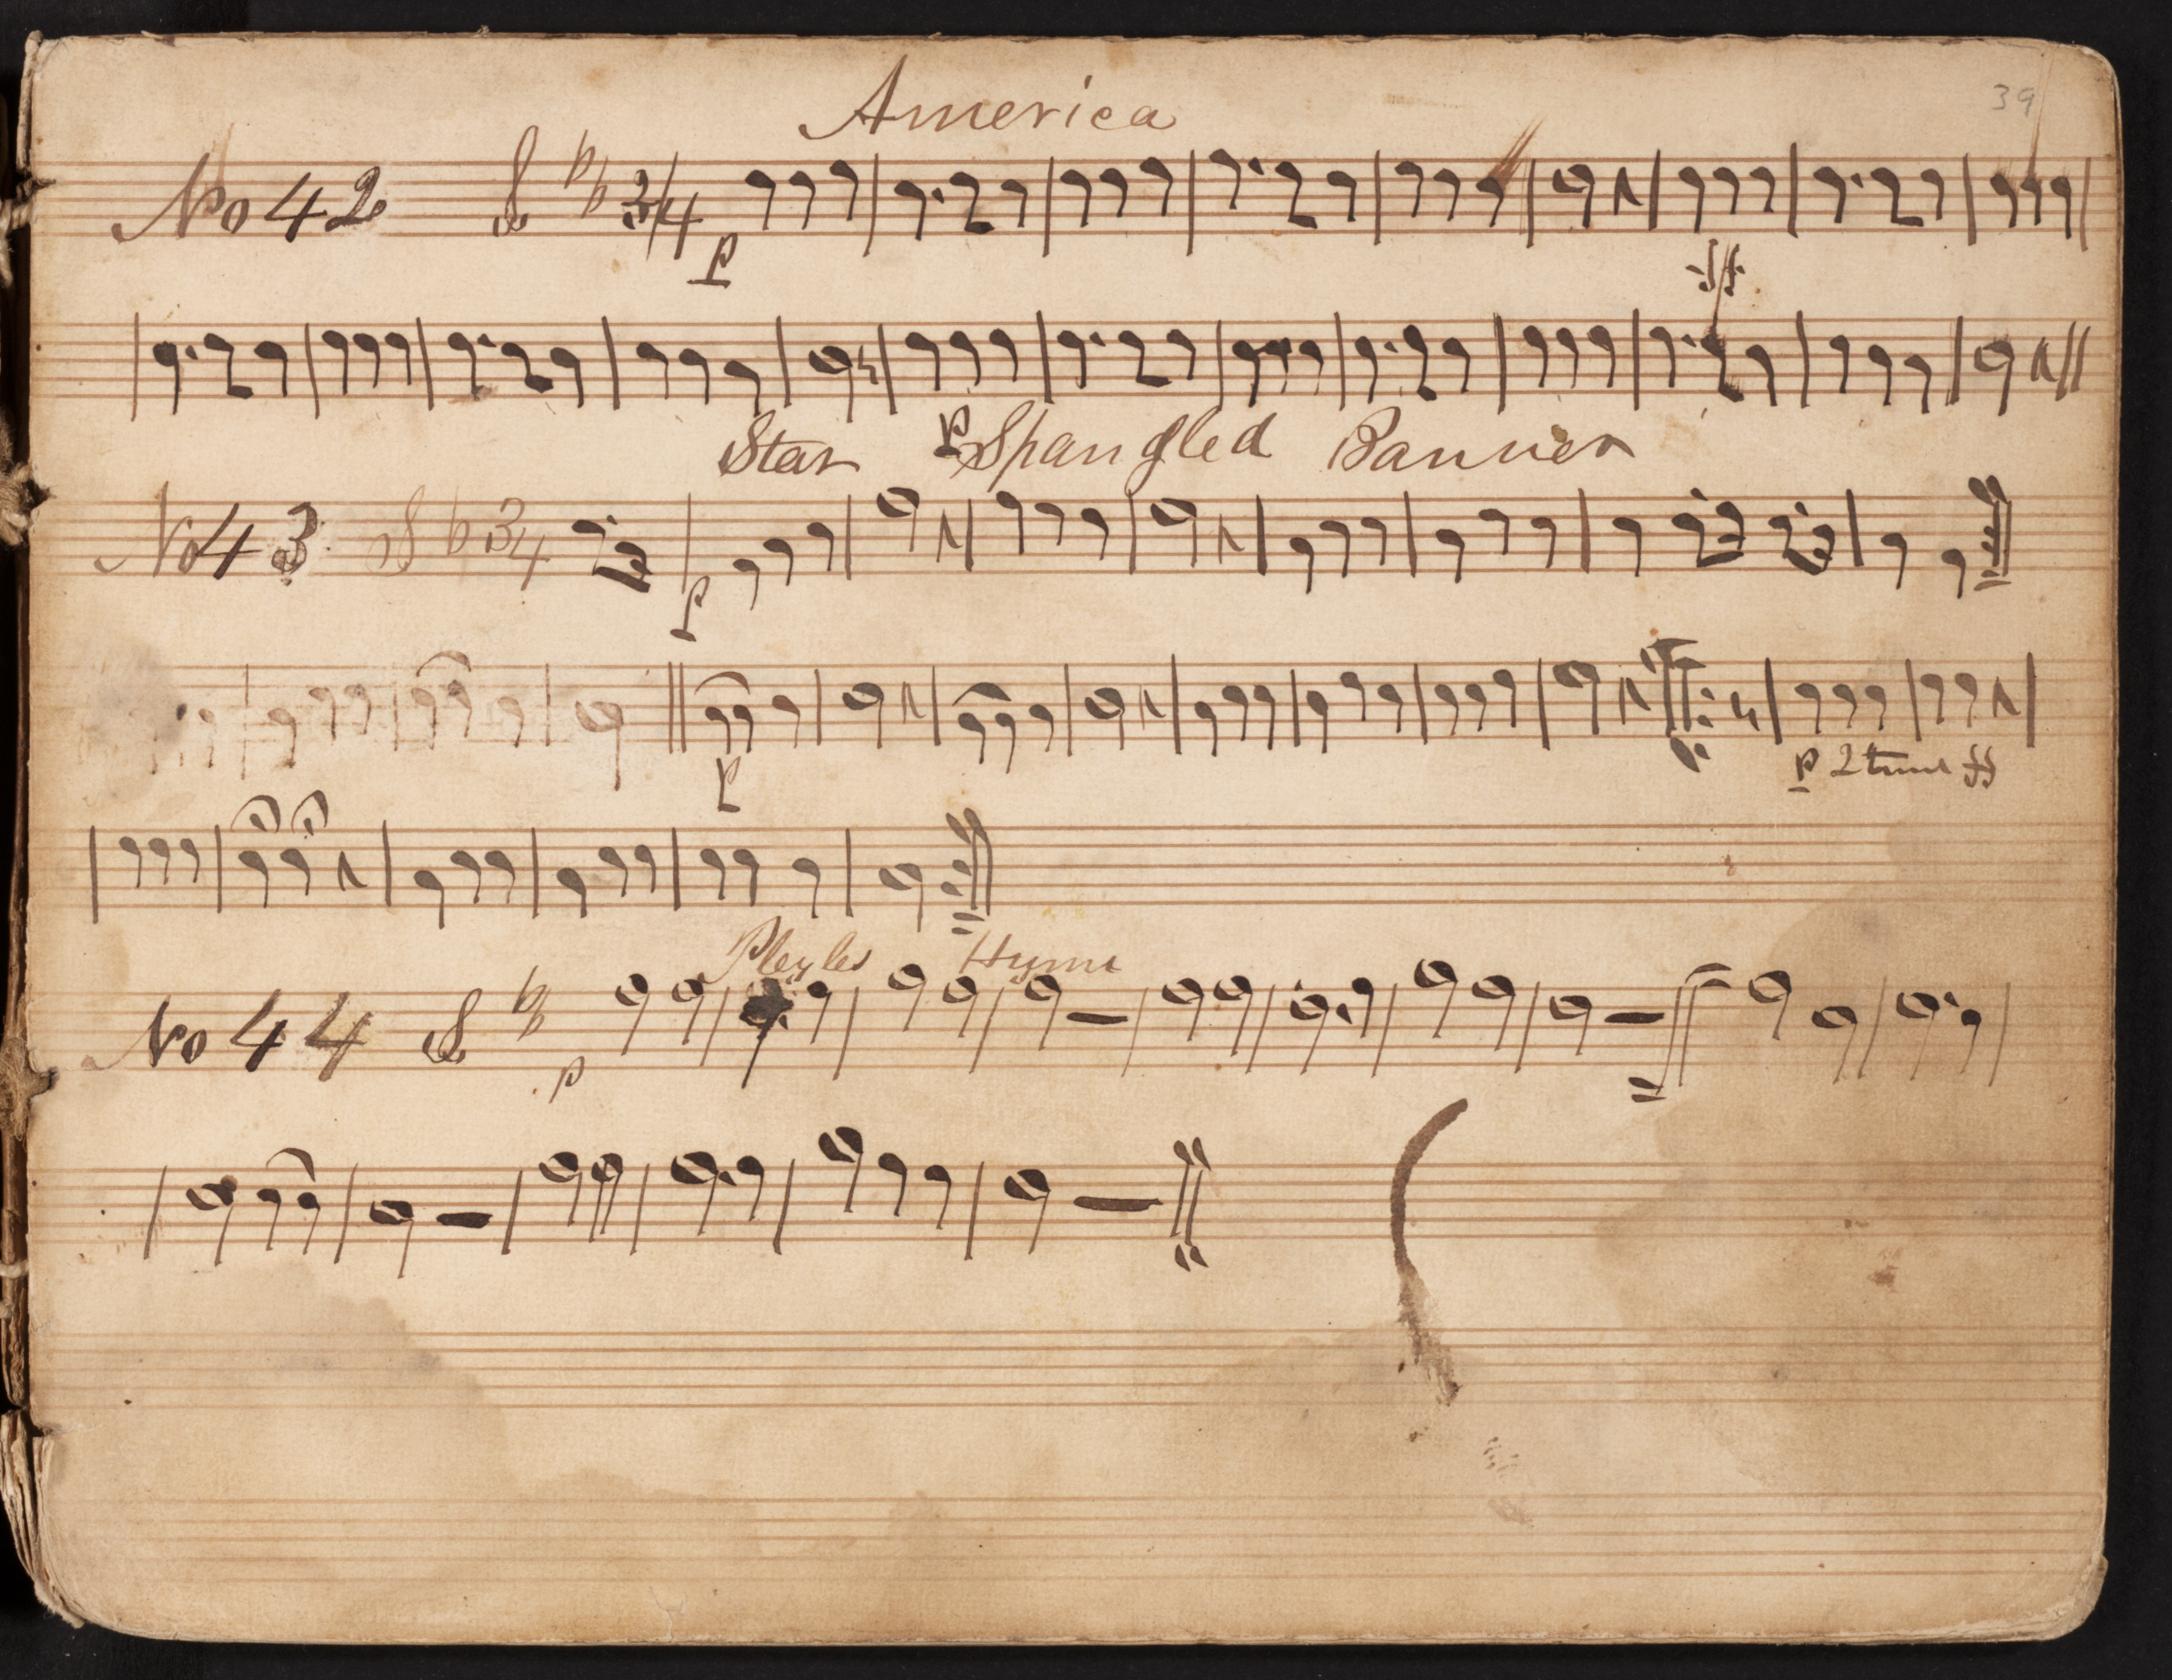 America
39
No 42 3/4
p
ff
Star Spangled Banner
p
No 43 3 4
p
p
p 2 time ff
Pleyles Hymn
No 44
p